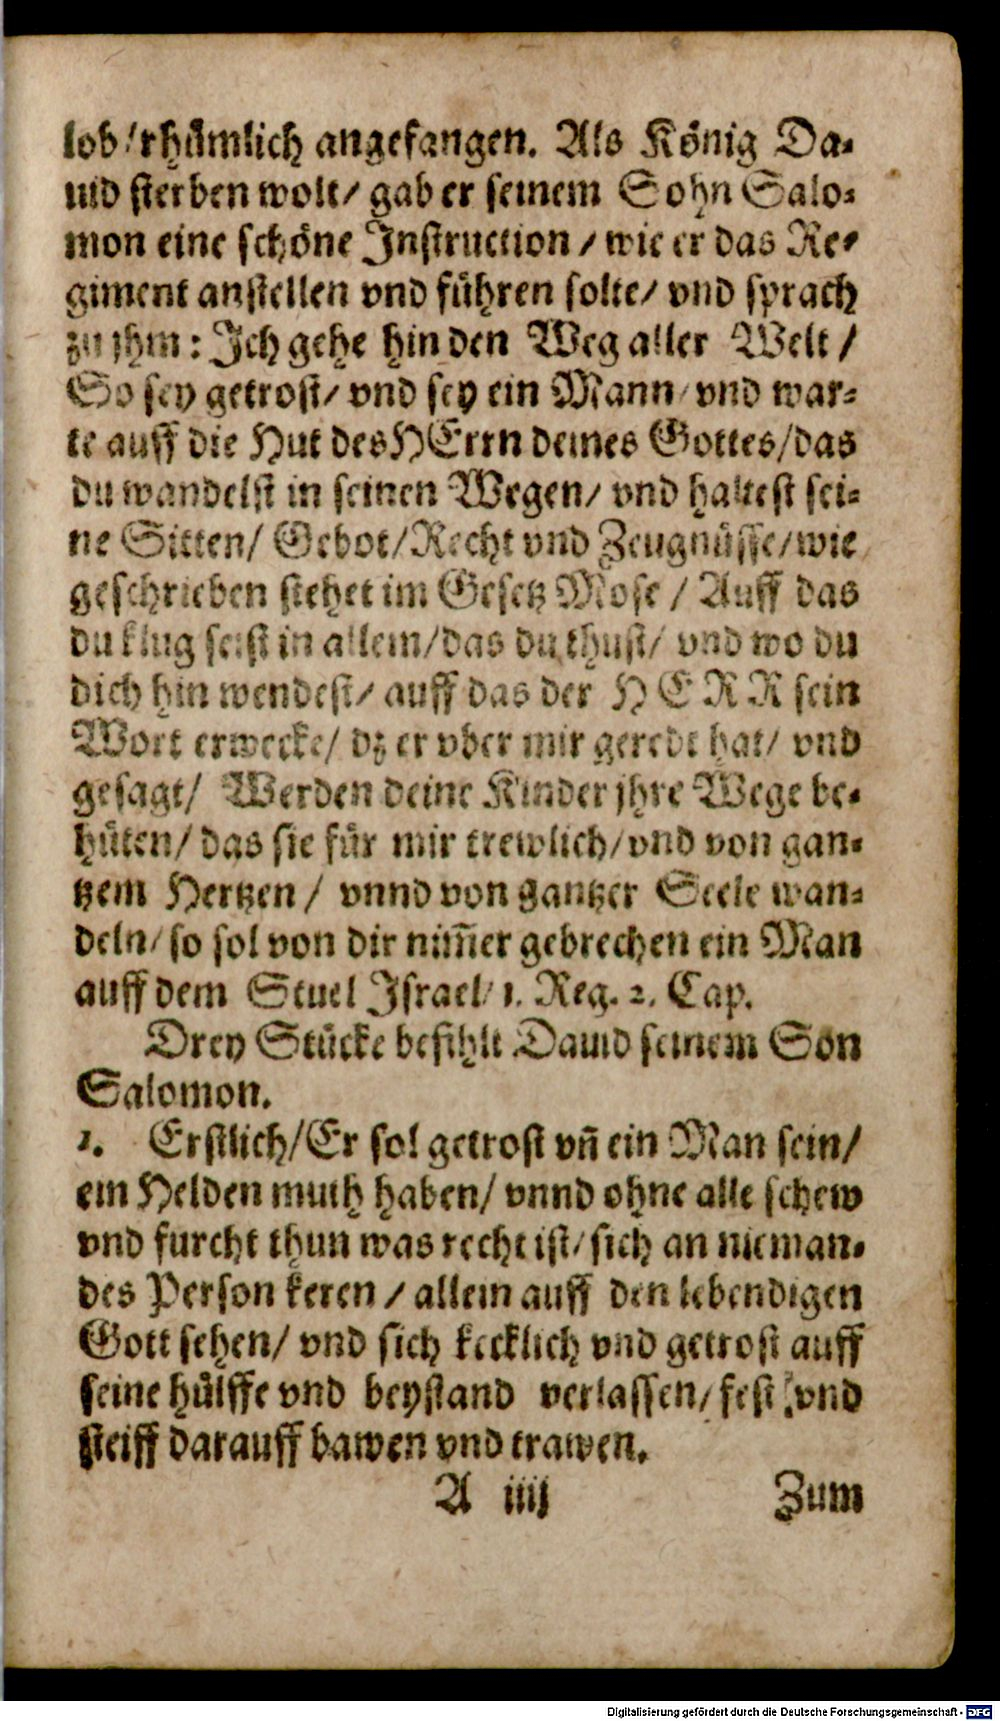 lob/rhümlich angefangen. Als König Da-
uid sterben wolt/ gab er seinem Sohn Salo-
mon eine schöne Instruction / wie er das Re-
giment anstellen vnd führen solte/ vnd sprach
zu jhm: Ich gehe hin den Weg aller Welt /
So sey getrost/ vnd sey ein Mann/ vnd war-
te auff die Hut des HErrn deines Gottes/das
du wandelst in seinen Wegen/ vnd haltest sei-
ne Sitten/ Gebot/Recht vnd Zeugnüsse/wie
geschrieben stehet im Gesetz Mose / Auff das
du klug seist in allem/das du thust/ vnd wo du
dich hin wendest/ auff das der HERR sein
Wort erwecke/ dz er vber mir geredt hat/ vnd
gesagt/ Werden deine Kinder jhre Wege be-
hüten/ das sie für mir trewlich/vnd von gan-
tzem Hertzen / vnnd von gantzer Seele wan-
deln/ so sol von dir nim̃er gebrechen ein Man
auff dem Stuel Israel/ 1. Reg. 2. Cap.
Drey Stücke befihlt Dauid seinem Son
Salomon.
1. Erstlich/Er sol getrost vñ ein Man sein/
ein Helden muth haben/ vnnd ohne alle schew
vnd furcht thun was recht ist/ sich an nieman-
des Person keren / allein auff den lebendigen
Gott sehen/ vnd sich kecklich vnd getrost auff
seine hülffe vnd beystand verlassen/ fest vnd
steiff darauff bawen vnd trawen.
A iiij Zum
Digitalisierung gefördert durch die Deutsche Forschungsgemeinschaft - DFG